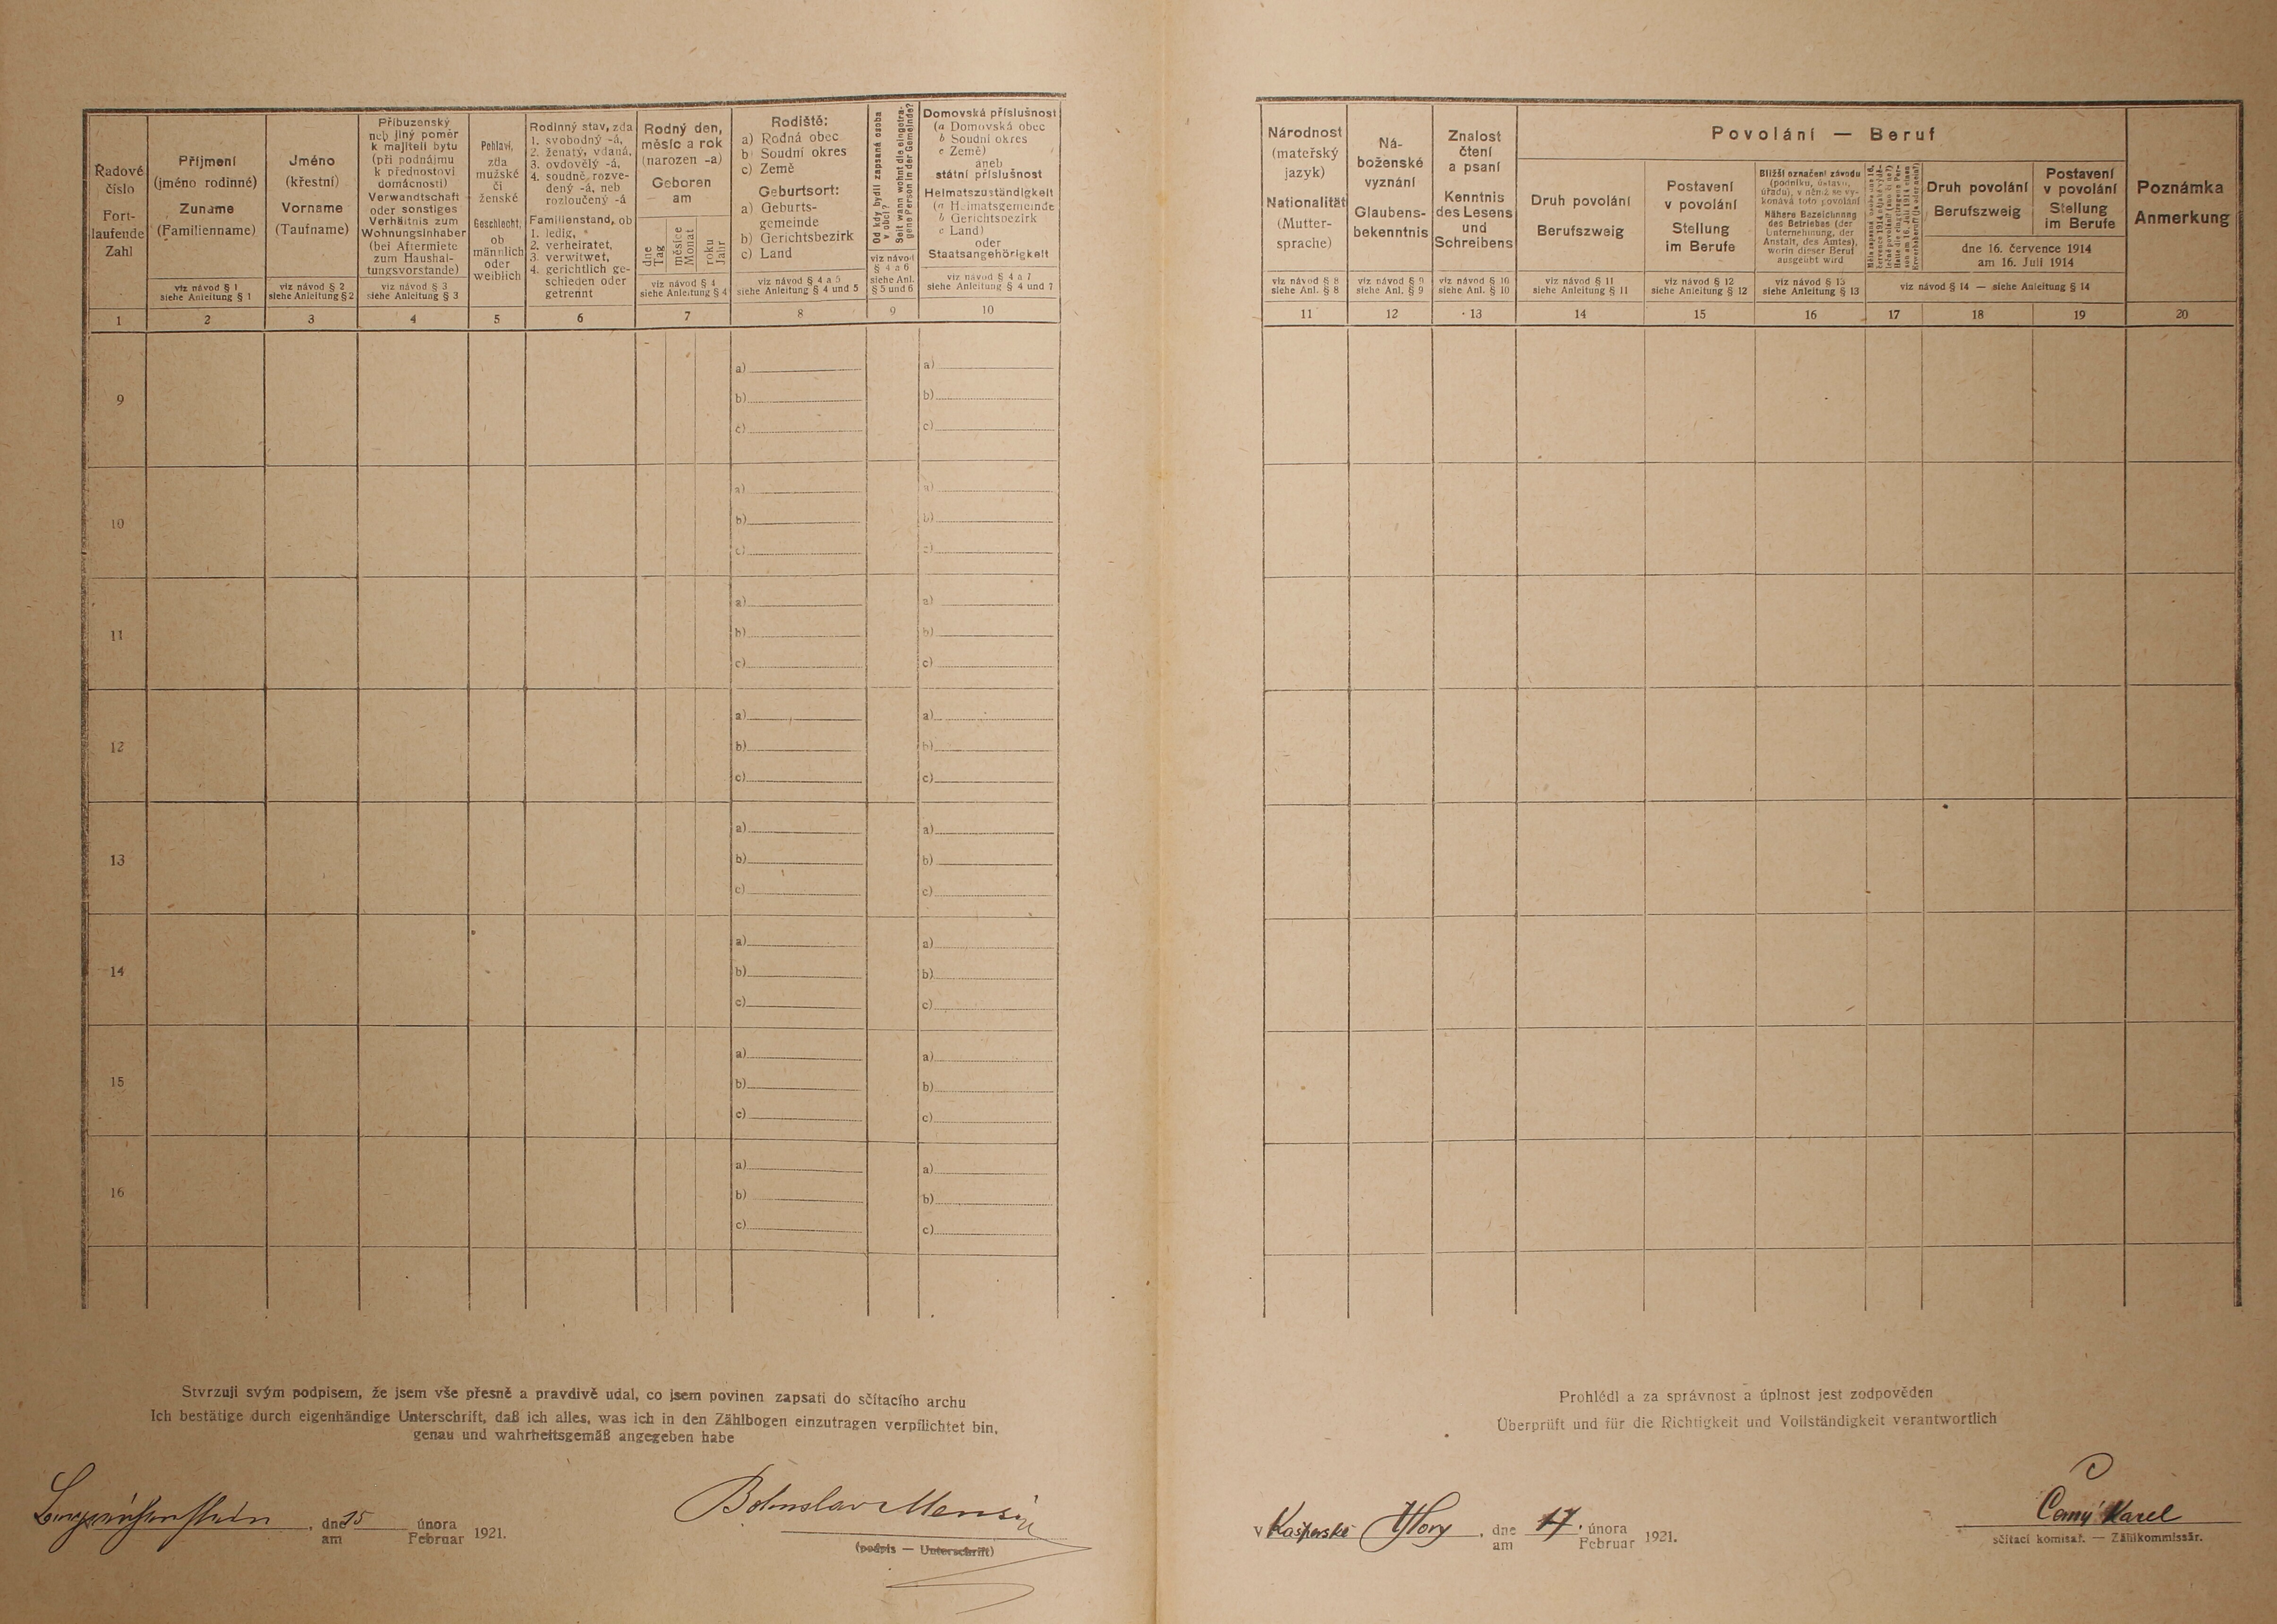 Řadové
číslo
Fort-
laufende
Zahl
Příjmení
(jméno rodinné)
Zuname
(Familienname)
viz návod § 1
siehe Anleitung § 1
Jméno
(křestní)
Vorname
(Taufname)
viz návod § 2
siehe Anleitung § 2
Příbuzenský
neb jiný poměr
k majiteli bytu
(při podnájmu
k přednostovi
domácnosti)
Verwandtschaft
oder sonstiges
Verhältnis zum
Wohnungsinhaber
(bei Aftermiete
zum Haushal-
tungsvorstande)
viz návod § 3
siehe Anleitung § 3
Pohlaví,
zda
mužské
či
ženské
Geschlecht,
ob
männlich
oder
weiblich
Rodinný stav, zda
1. svobodný -á,
2. ženatý, vdaná,
3. ovdovělý -á,
4. soudně rozve-
dený -á, neb
rozloučený -á
Familienstand, ob
1. ledig,
2. verheiratet,
3. verwitwet,
4. gerichtlich ge-
schieden oder
getrennt
Rodný den,
měsíc a rok
(narozen -a)
Geboren
am
dne
Tag
měsíce
Monat
roku
Jahr
viz návod § 4
siehe Anleitung § 4
Rodiště:
a) Rodná obec
b) Soudní okres
c) Země
Geburtsort:
a) Geburts-
gemeinde
b) Gerichtsbezirk
c) Land
viz návod § 4 a 5
siehe Anleitung § 4 und 5
Od kdy bydlí zapsaná osoba
v obci?
Seit wann wohnt die eingetra-
gene Person in der Gemeinde?
viz návod
§ 4 a 6
siehe Anl.
§ 5 und 6
Domovská příslušnost
(a Domovská obec
b Soudní okres
c Země)
aneb
státní příslušnost
Heimatszuständigkeit
(a Heimatsgemeinde
b Gerichtsbezirk
c Land)
oder
Staatsangehörigkeit
viz návod § 4 a 7
siehe Anleitung § 4 und 7
1 2 3 4 5 6 7 8 9 10
9
a) a)
b) b)
c) c)
10
a) a)
b) b)
c) c)
11
a) a)
b) b)
c) c)
12
a) a)
b) b)
c) c)
13
a) a)
b) b)
c) c)
14
a) a)
b) b)
c) c)
15
a) a)
b) b)
c) c)
16
a) a)
b) b)
c) c)
Stvrzuji svým podpisem, že jsem vše přesně a pravdivě udal, co jsem povinen zapsati do sčítacího archu
Ich bestätige durch eigenhändige Unterschrift, daß ich alles, was ich in den Zählbogen einzutragen verpflichtet bin,
genau und wahrheitsgemäß angegeben habe
dne 15 února
am Februar 1921.
Bohuslav
(podpis — Unterschrift)
Národnost
(mateřský
jazyk)
Nationalität
(Mutter-
sprache)
viz návod § 8
siehe Anl. § 8
Ná-
boženské
vyznání
Glaubens-
bekenntnis
viz návod § 9
siehe Anl. § 9
Znalost
čtení
a psaní
Kenntnis
des Lesens
und
Schreibens
viz návod § 10
siehe Anl. § 10
Povolání — Beruf
Druh povolání
Berufszweig
viz návod § 11
siehe Anleitung § 11
Postavení
v povolání
Stellung
im Berufe
viz návod § 12
siehe Anleitung § 12
Bližší označení závodu
(podniku, ústavu,
úřadu), v němž se vy-
konává toto povolání
Nähere Bezeichnung
des Betriebes (der
Unternehmung, der
Anstalt, des Amtes),
worin dieser Beruf
ausgeübt wird
viz návod § 13
siehe Anleitung § 13
Druh povolání
Berufszweig
Postavení
v povolání
Stellung
im Berufe
dne 16. července 1914
am 16. Juli 1914
viz návod § 14 — siehe Anleitung § 14
Poznámka
Anmerkung
11 12 13 14 15 16 17 18 19 20
Prohlédl a za správnost a úplnost jest zodpověden
Überprüft und für die Richtigkeit und Vollständigkeit verantwortlich
v Kašperské Hory, dne 17. února
am Februar 1921.
Karel
sčítací komisař. — Zählkommissär.